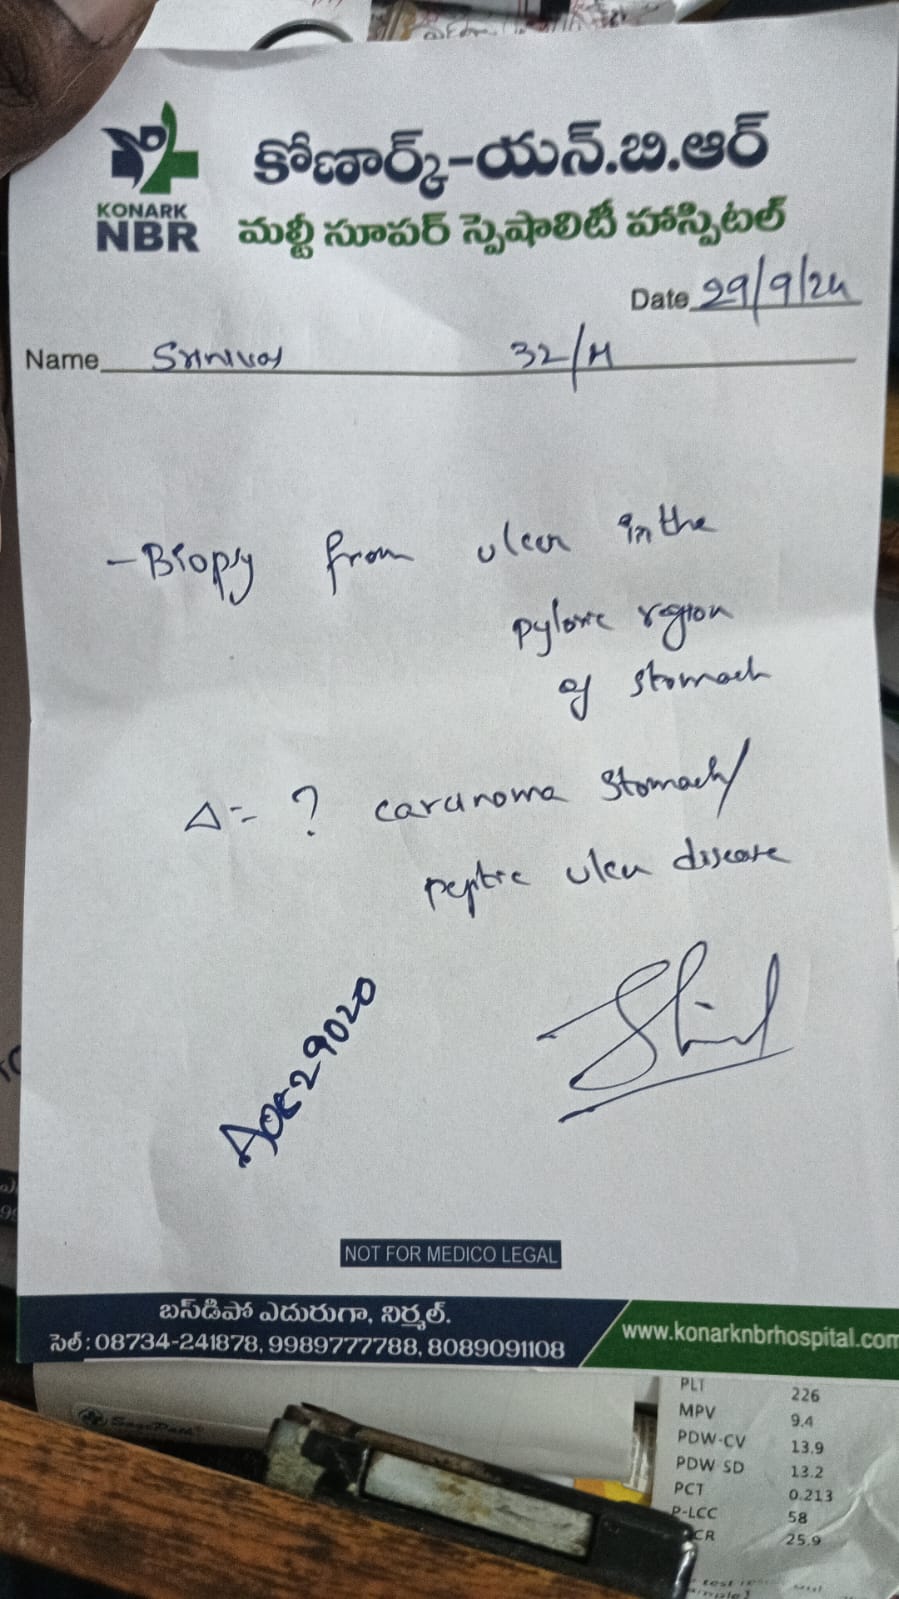 కోణార్క్-యన్.బి.ఆర్
KONARK
NBR
మల్టీ సూపర్ స్పెషాలిటీ హాస్పిటల్
Date 29/9/24
Name Srinivas 32/M
- Biopsy from ulcer in the
pyloric region
of stomach
Δ = ? carcinoma stomach/
peptic ulcer disease
NOT FOR MEDICO LEGAL
బస్‌డిపో ఎదురుగా, నిర్మల్.
సెల్ : 08734-241878, 9989777788, 8089091108
www.konarknbrhospital.com
PLT 226
MPV 9.4
PDW-CV 13.9
PDW SD 13.2
PCT 0.213
P-LCC 58
CR 25.9